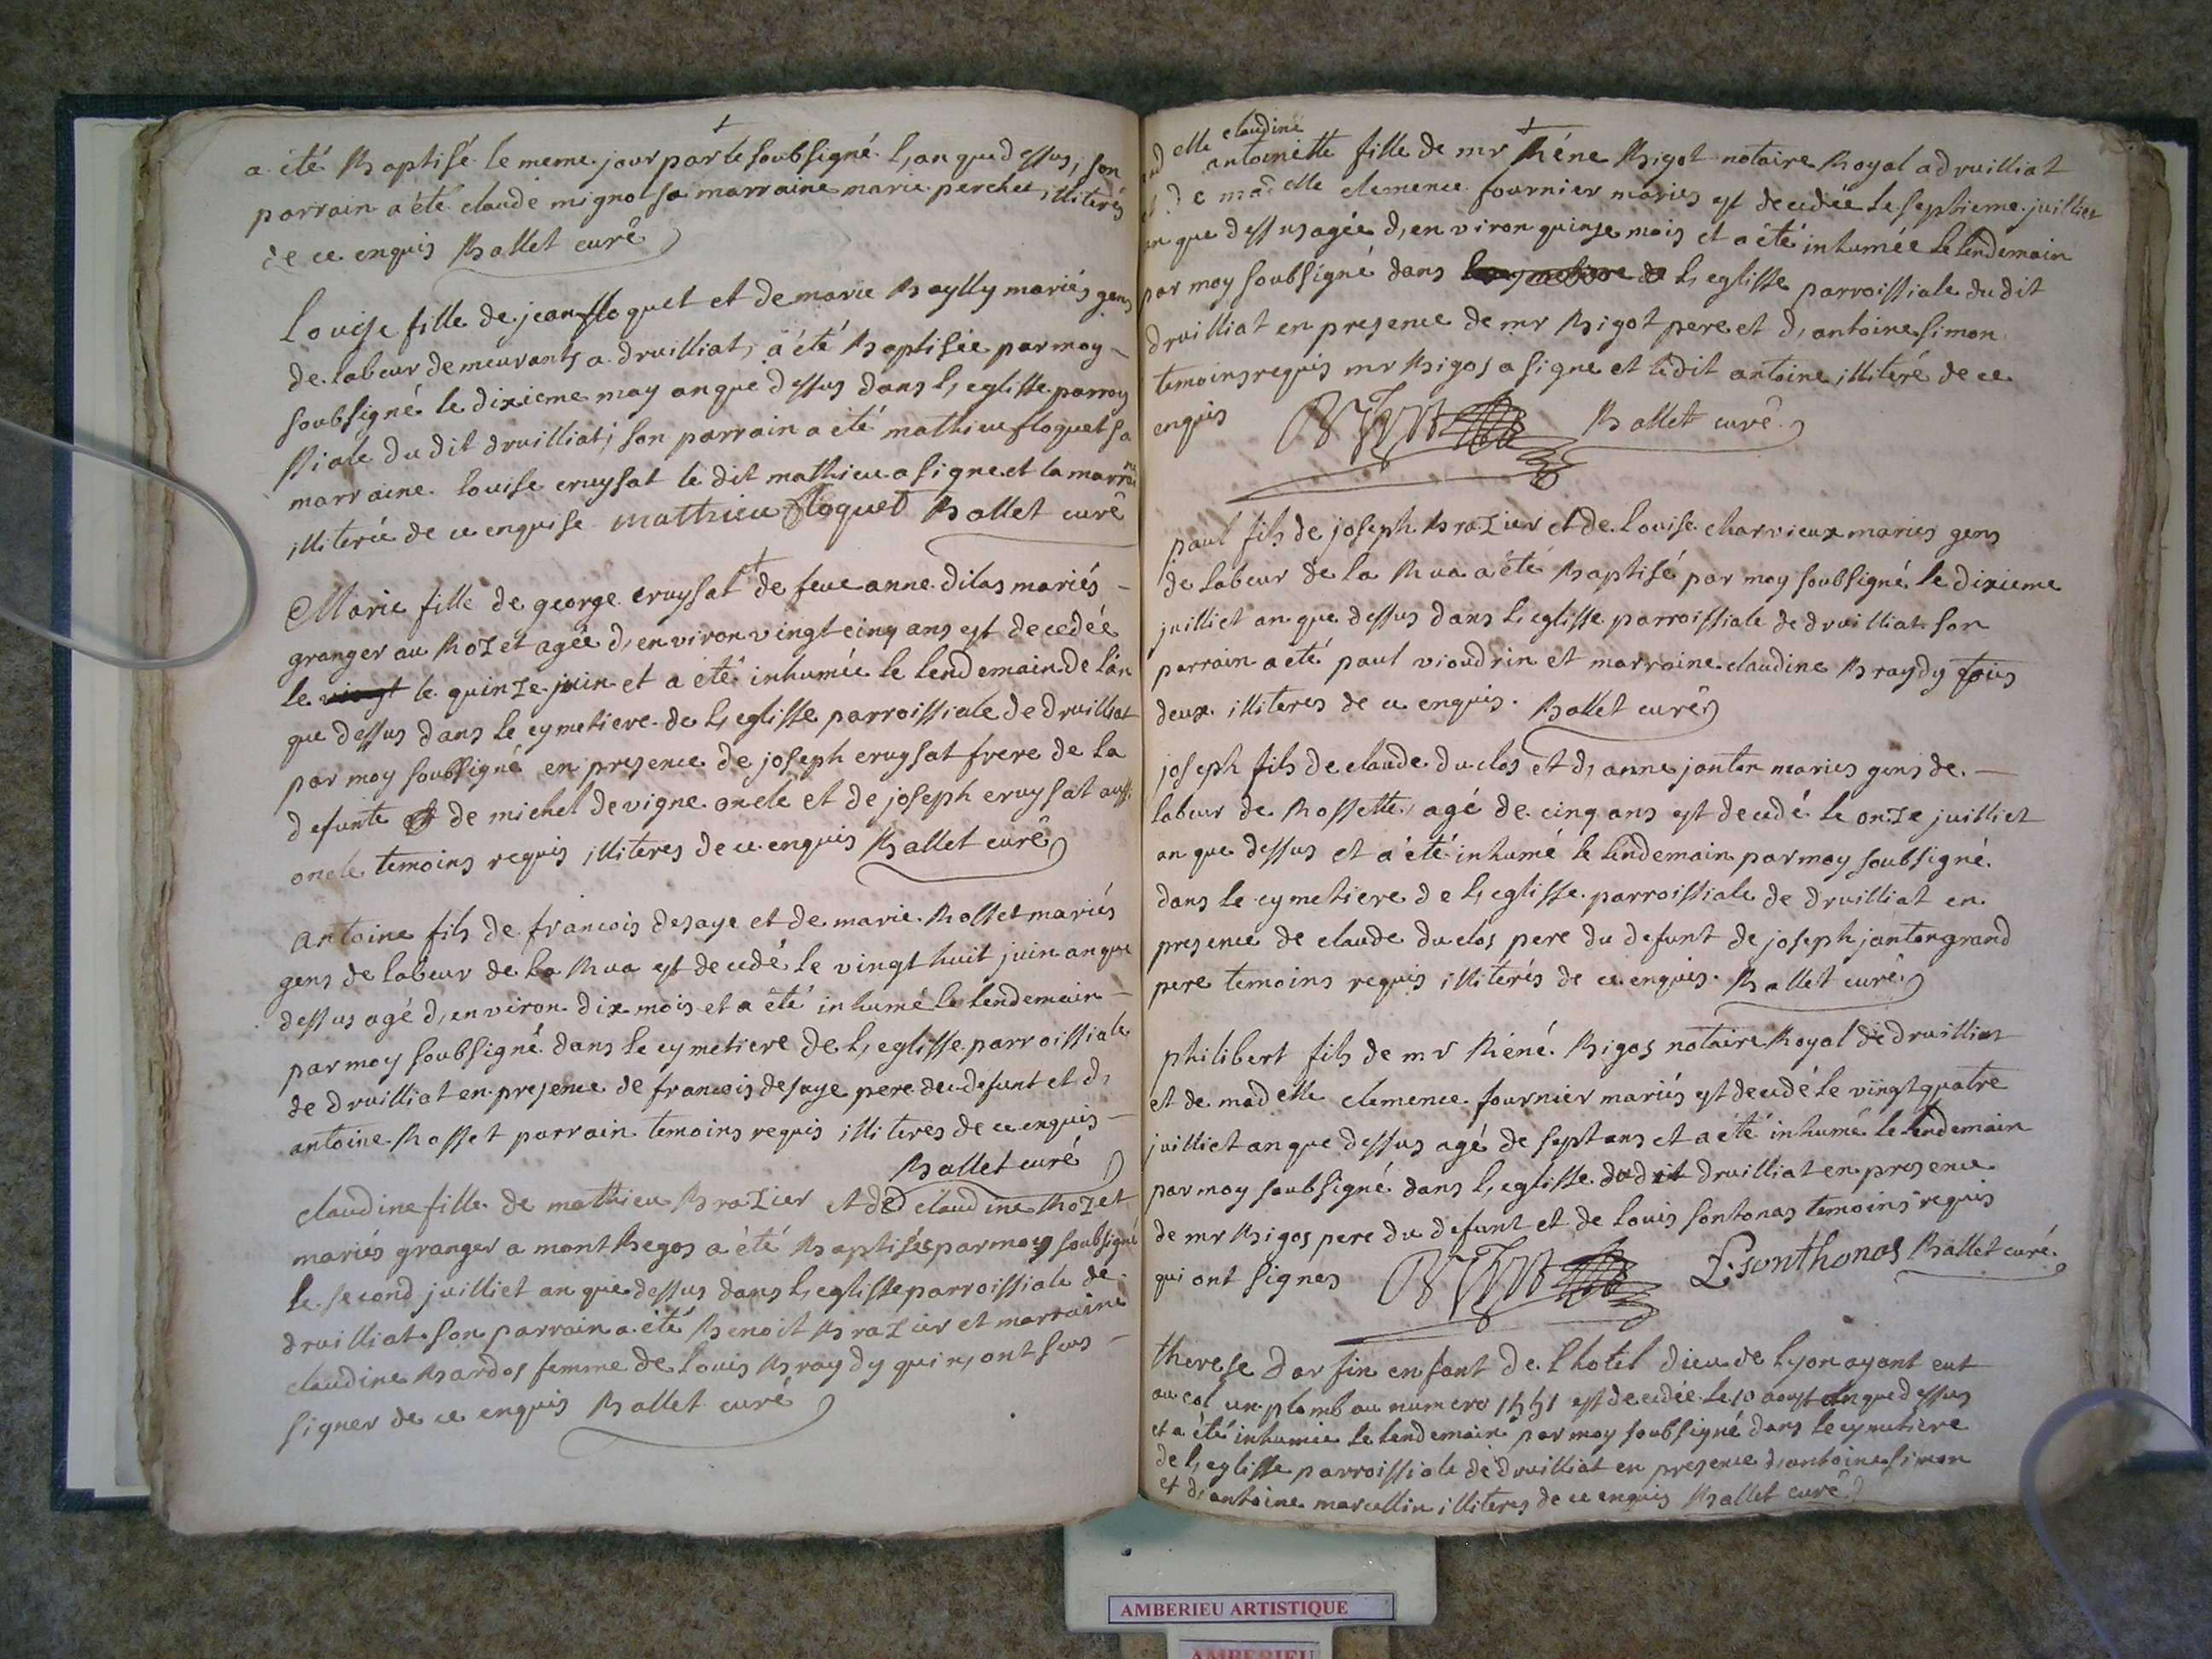 a été Baptisé le meme jour par le soubsigné l, an que dessus, son
parrain a été claude mignot sa marraine marie perchet, illiterés
de ce enquis Ballet curé
Louise fille de jean floquet et de marie Baylly mariés gens
de labeur demeurants a druilliat, a été Baptisée par moy
soubsigné le dixieme may an que dessus dans l, eglisse parroy
ssiale du dit druilliat, son parrain a été mathieu floquet sa
marraine louise cruysat le dit mathieu a signe et la marraine
illiterée de ce enquise mathieu floquet Ballet curé
Marie fille de george cruysat de feue anne dilas mariés
granger au Rozet agée d, environ vingt cinq ans est decedée
le le quinze juin et a été inhumée le lendemain de l'an
que dessus dans le cymetiere de l, eglisse parroissiale de druilliat
par moy soubsigné en presence de joseph cruysat frere de la
defunte de michel devigne oncle et de joseph cruysat aussi
oncle temoins requis illiteres de ce enquis Ballet curé
Antoine fils de francois desaye et de marie Rosset mariés
gens de labeur de la Rua est decedé le vingt huit juin an que
dessus agé d, environ dix mois et a été inhumé le lendemain
par moy soubsigné dans le cymetiere de l, eglisse parroissiale
de druilliat en presence de francois desaye pere du defunt et d,
antoine Rosset parrain temoins requis illiteres de ce enquis
Ballet curé
claudine fille de mathieu Brazier et de claudine Rozet
mariés granger a mont Begos a été Baptisée par moy soubsigné
le second juilliet an que dessus dans l, eglisse parroissiale de
druilliat son parrain a été Benoit Brazier et marraine
claudine Bardos femme de louis Braydy qui n, ont sus
signer de ce enquis Ballet curé
elle claudine
antoinette fille de mr Réne Bigot notaire Royal a druilliat
et de madelle clemence fournier mariés est decedée le septieme juilliet
an que dessus agée d, environ quinse mois et a été inhumée le lendemain
par moy soubsigné dans l, eglisse parroissiale du dit
druilliat en presence de mr Bigot pere et d, antoine simon
temoins requis mr Bigos a signe et ledit antoine illiteré de ce
enquis Ballet curé
paul fils de joseph Brazier et de louise charvieux mariés gens
de labeur de la Rua a été Baptisé par moy soubsigné le dixieme
juilliet an que dessus dans l, eglisse parroissiale de druilliat son
parrain a été paul vioudrin et marraine claudine Braydy tous
deux illiteres de ce enquis. Ballet curé
joseph fils de claude duclos et d, anne janton mariés gens de
labeur de Rossette, agé de cinq ans est decedé le onze juilliet
an que dessus et a été inhumé le lendemain par moy soubsigné
dans le cymetiere de l, eglisse parroissiale de druilliat en
presence de claude duclos pere du defunt de joseph janton grand
pere temoins requis illiterés de ce enquis. Ballet curé
philibert fils de mr Réné Bigos notaire Royal de druilliat
et de madelle clemence fournier mariés est decedé le vingt quatre
juilliet an que dessus agé de sept ans et a été inhumé le lendemain
par moy soubsigné dans l, eglisse dudit druilliat en presence
de mr Bigos pere du defunt et de louis sontonas temoins requis
qui ont signes L. sonthonas Ballet curé
therese dar fin enfant de l hotel dieu de lyon ayant eut
au col un plomb au numero est decedée le 10 aoust an que dessus
et a été inhumée le lendemain par moy soubsigné dans le cymetiere
de l, eglisse parroissiale de druilliat en presence d, antoine simon
et d, antoine marcellin illiteres de ce enquis Ballet curé
AMBERIEU ARTISTIQUE
AMBERIEU